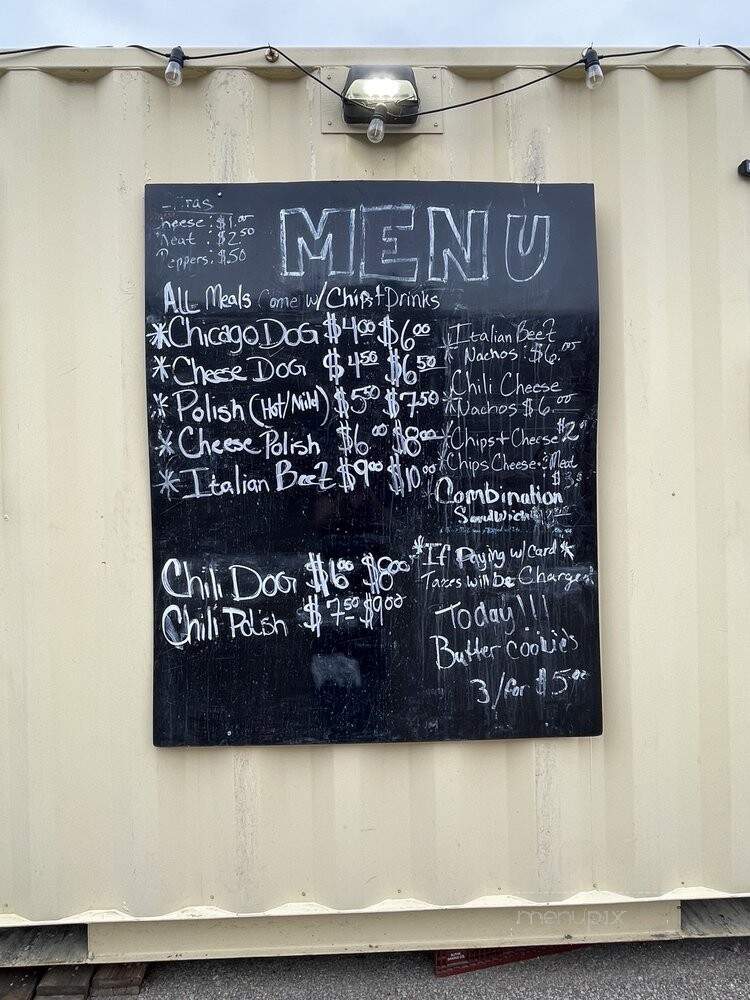 MENU
Cheese: $1.00
Meat: $2.50
Peppers: $.50
ALL Meals Come w/ Chips + Drinks
*Chicago DOG $4.00 $6.00
*Cheese DOG $4.50 $6.50
*Polish (Hot/Mild) $5.50 $7.50
*Cheese Polish $6.00 $8.00
*Italian Beef $9.00 $10.00
Chili DOG $6.00 $8.00
Chili Polish $7.50 $9.00
*Italian Beef
Nachos: $6.00
Chili Cheese
*Nachos $6.00
*Chips + Cheese $2.00
*Chips Cheese: Meat
Combination
Sandwich
*If Paying w/ Card*
Taxes will be Charged
Today!!!
Butter cookies
3/for $5.00
menupix